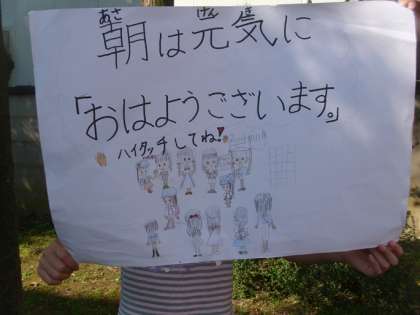 朝は元気に
「おはようございます。」
ハイタッチしてね!